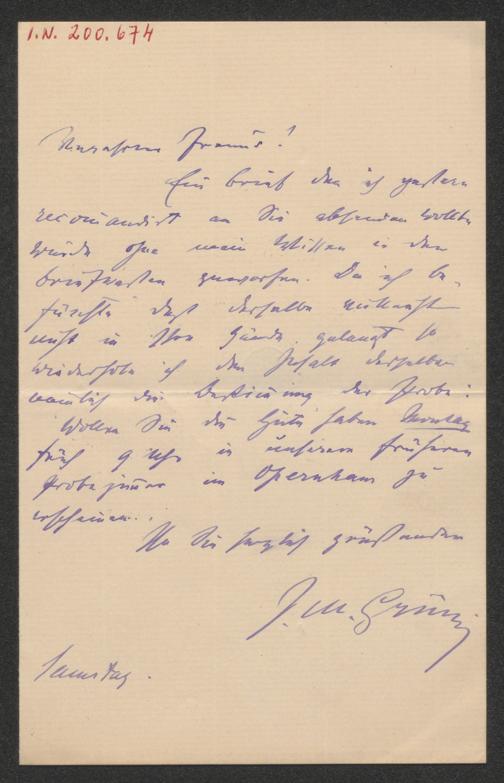 I.N. 200.674
Verehrter Freund!
Ein Brief den ich gestern
recomandirt an Sie absenden wollte
wurde ohne mein Wissen in den
Briefkasten geworfen. Da ich be-
fürchte dass derselbe vielleicht
nicht in Ihre Hände gelangt so
wiederhole ich den Inhalt desselben
nämlich die Bestimmung der Probe:
Wollen Sie die Güte haben Montag
früh 9 Uhr in unserem früheren
Probezimmer im Opernhaus zu
erscheinen.
Ihr Sie herzlich grüssender
J. M. Grün
Samstag.